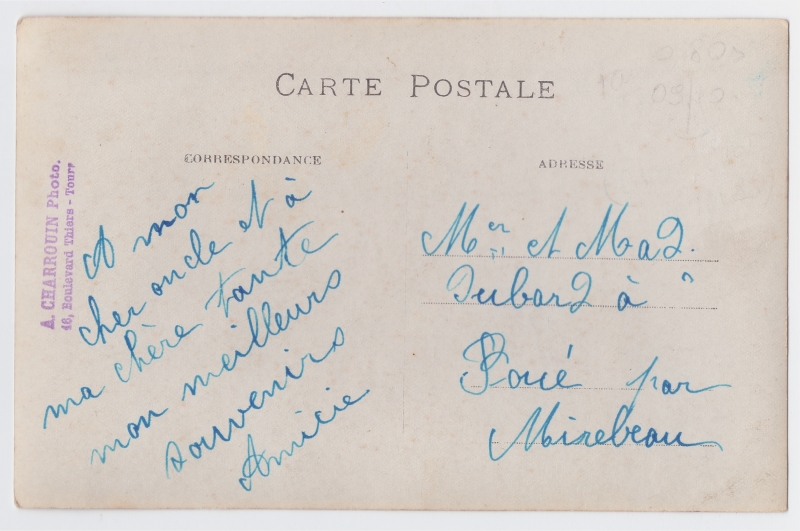 CARTE POSTALE
CORRESPONDANCE
ADRESSE
A. CHARROUIN Photo.
46, Boulevard Thiers - Tours
A mon
cher oncle et à
ma chère tante
mon meilleurs
souvenirs
Amicie
Mer et Mad.
Dubard à
Poué par
Mirebeau